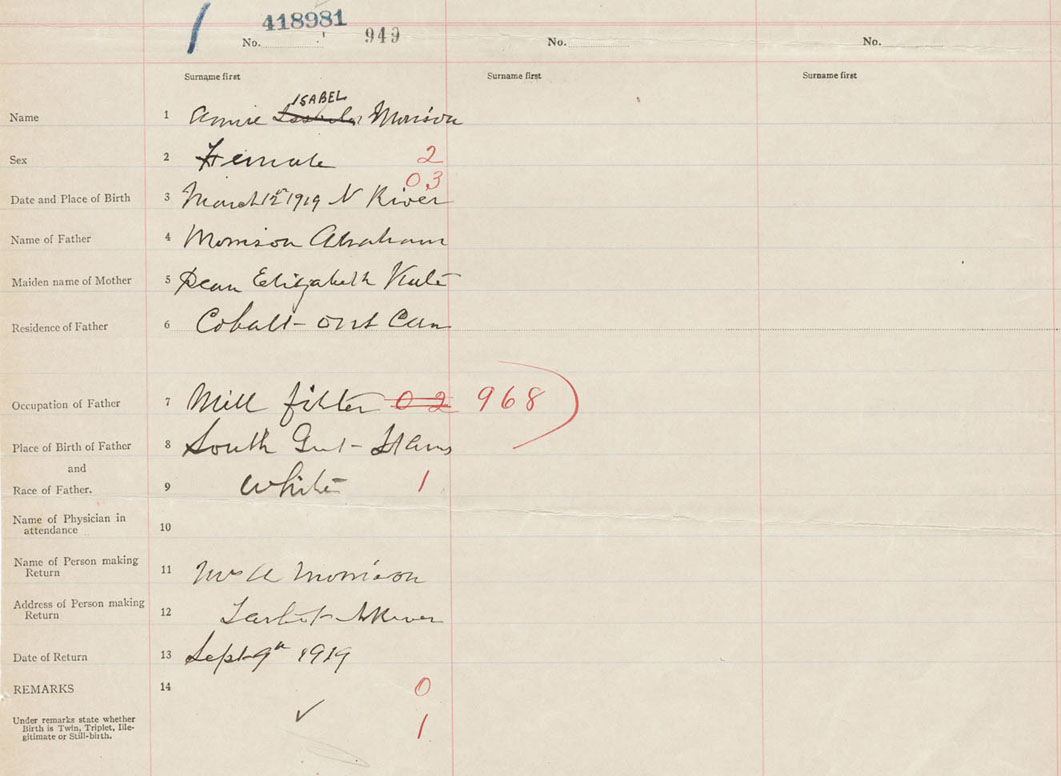 418981
No. 949 No. No.
Surname first Surname first Surname first
ISABEL
Name 1 Annie Isabela Morrison
Sex 2 Female 2
03
Date and Place of Birth 3 March 12th 1919 N River
Name of Father 4 Morrison Abraham
Maiden name of Mother 5 Elizabeth Kate
Residence of Father 6 Cobalt - Ont Can
Occupation of Father 7 Mill fitter 02 968
Place of Birth of Father 8 South Gut - St Anns
and
Race of Father. 9 White 1
Name of Physician in
attendance 10
Name of Person making
Return 11 Mrs A Morrison
Address of Person making
Return 12 Tarbot
Date of Return 13 Sept 9th 1919
REMARKS 14 0
Under remarks state whether
Birth is Twin, Triplet, Ille-
gitimate or Still-birth. 1